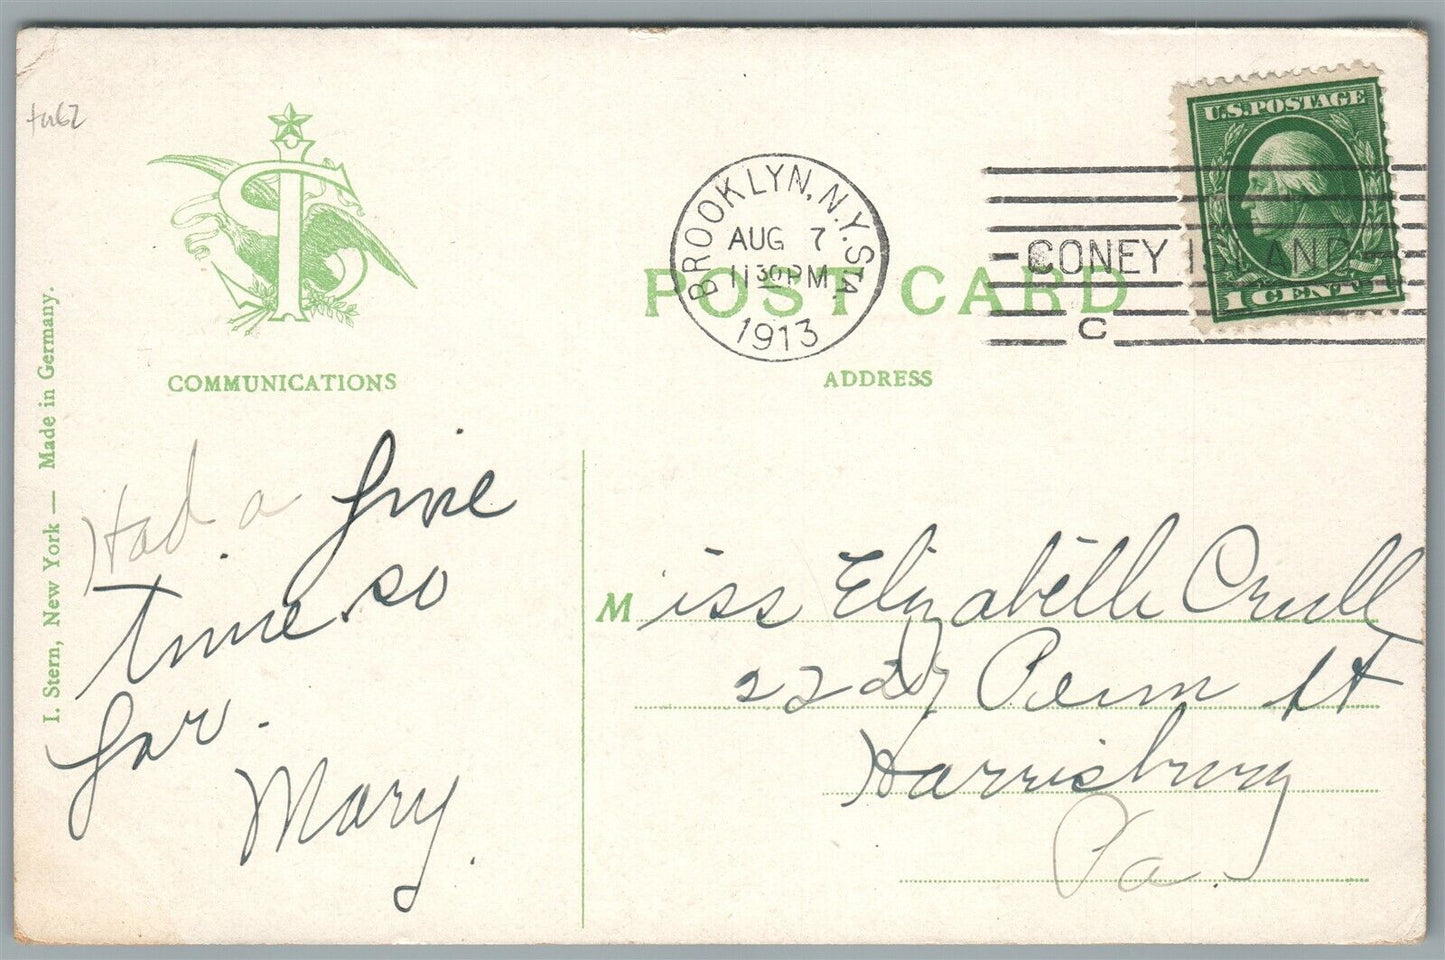 U.S.POSTAGE
1 CENT 1
BROOKLYN, N.Y. STA.
AUG 7
11 30 PM
1913
CONEY ISLAND
C
POST CARD
COMMUNICATIONS
ADDRESS
I. Stern, New York — Made in Germany.
Had a fine
time so
far.
Mary.
Miss Elizabeth Crull
Penn St
Harrisburg
Pa.